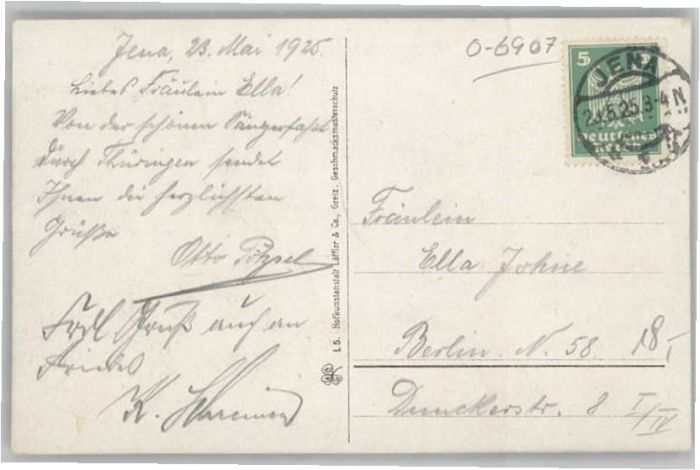 Jena, 23. Mai 1925.
Liebes Fräulein Ella!
Von der schönen Sängerfahrt
durch Thüringen sendet
Ihnen die herzlichsten
Grüße
Otto
Frdl Gruß auch an
K.
L.S. Hofkunstanstalt Löffler & Co., Greiz. Geschmacksmusterschutz
0-6907
5
Deutsches
Reich
JENA
23.5.25.3-4 N
Fräulein
Ella Johne
Berlin. N. 58.
18,-
Dunckerstr. 8 I/IV